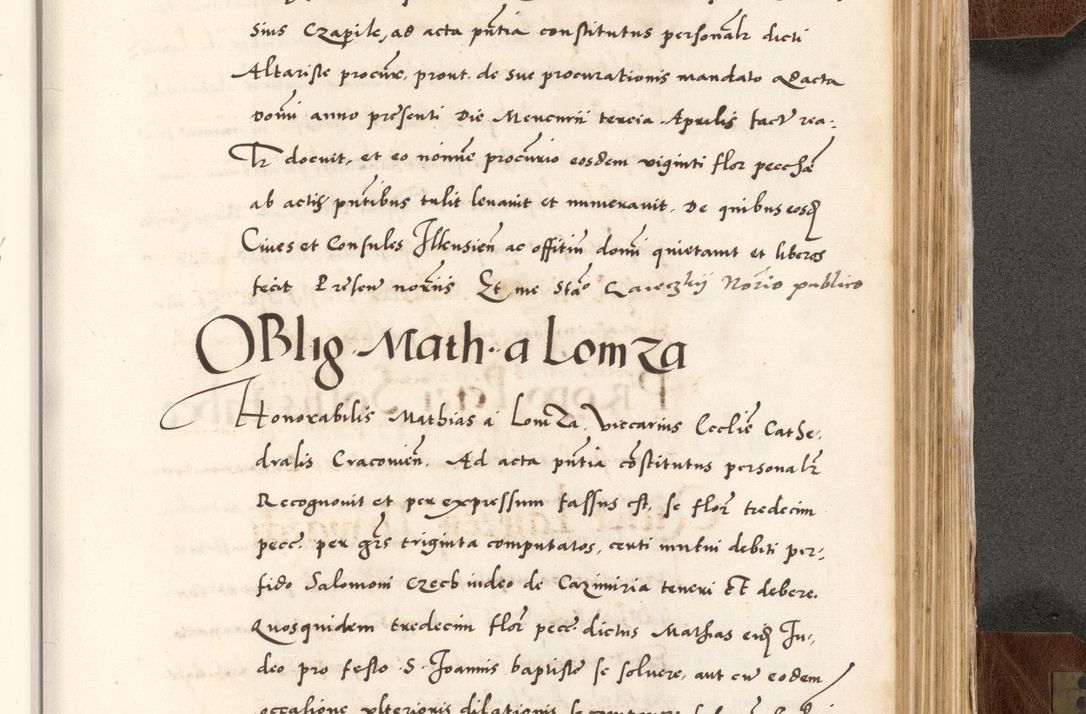 Sius Czapile, ad acta pñtia constitutus personalr dicti
Altariste procure, prout de sue procurationis mandato ad acta
Domi anno presenti Die Mercurii tercia Aprilis fact rea-
Tr docuit, et eo noiñe procurio eosdem viginti flor pecchã
ab actis pñtibus tulit levavit et numeravit. De quibus eosd
Cives et Consules Ilkusien ac offitiu domi quietavit et liberos
fecit Presen noriis Et me Stao Notrio publico
OBlig. Math. a LomZa
Honorabilis Mathias á LomZa, Viccarius Ecclie Cathe-
dralis Cracovien, Ad acta pñtia cõstitutus personalr
Recognovit et per expressum fassus est, se flor tredecim
pecc. per grs triginta computatos, certi mutui debiti per-
fido Salomoni Czech iudeo de Cazimiria teneri et debere.
Quosquidem tredecim flor pecc dictus Mathias eid Iu-
deo pro festo S. Joannis baptiste se solvere, aut cu eodem
occasione ulterioris dilationis se